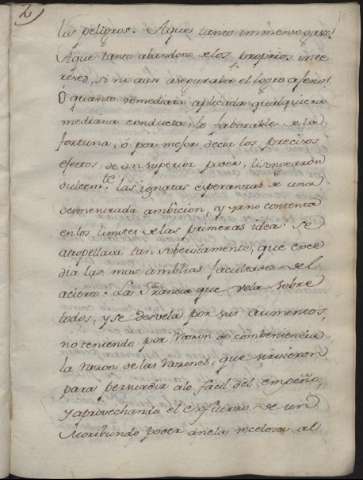 2
los peligros. A que tanto immenso gasto!
A que tanto abandono de los proprios inte
reses, si no aun aseguraba el logro ageno!
O quanto remediaria aplicada qualquiera
mediana conducta; lo faborable de la
fortuna, o por mejor decir los precisos
efectos de un superior poder, lisongearon
dulcem.te las ignotas esperanzas de una
desmensurada ambicion, q ya no contenta
en los limites de las primeras ideas se
atropellava tan sobervitamente, que exce
dia las mas amplias facultades del
acierto. La Francia que vela sobre
todos, y se desvela por sus aumentos,
no teniendo por razon de combeniencia
la razon de las razones, que sirvieron
para
a lo facil del empeño,
y aprovechando el esfuerzo de un
moribundo poder anela recelosa al